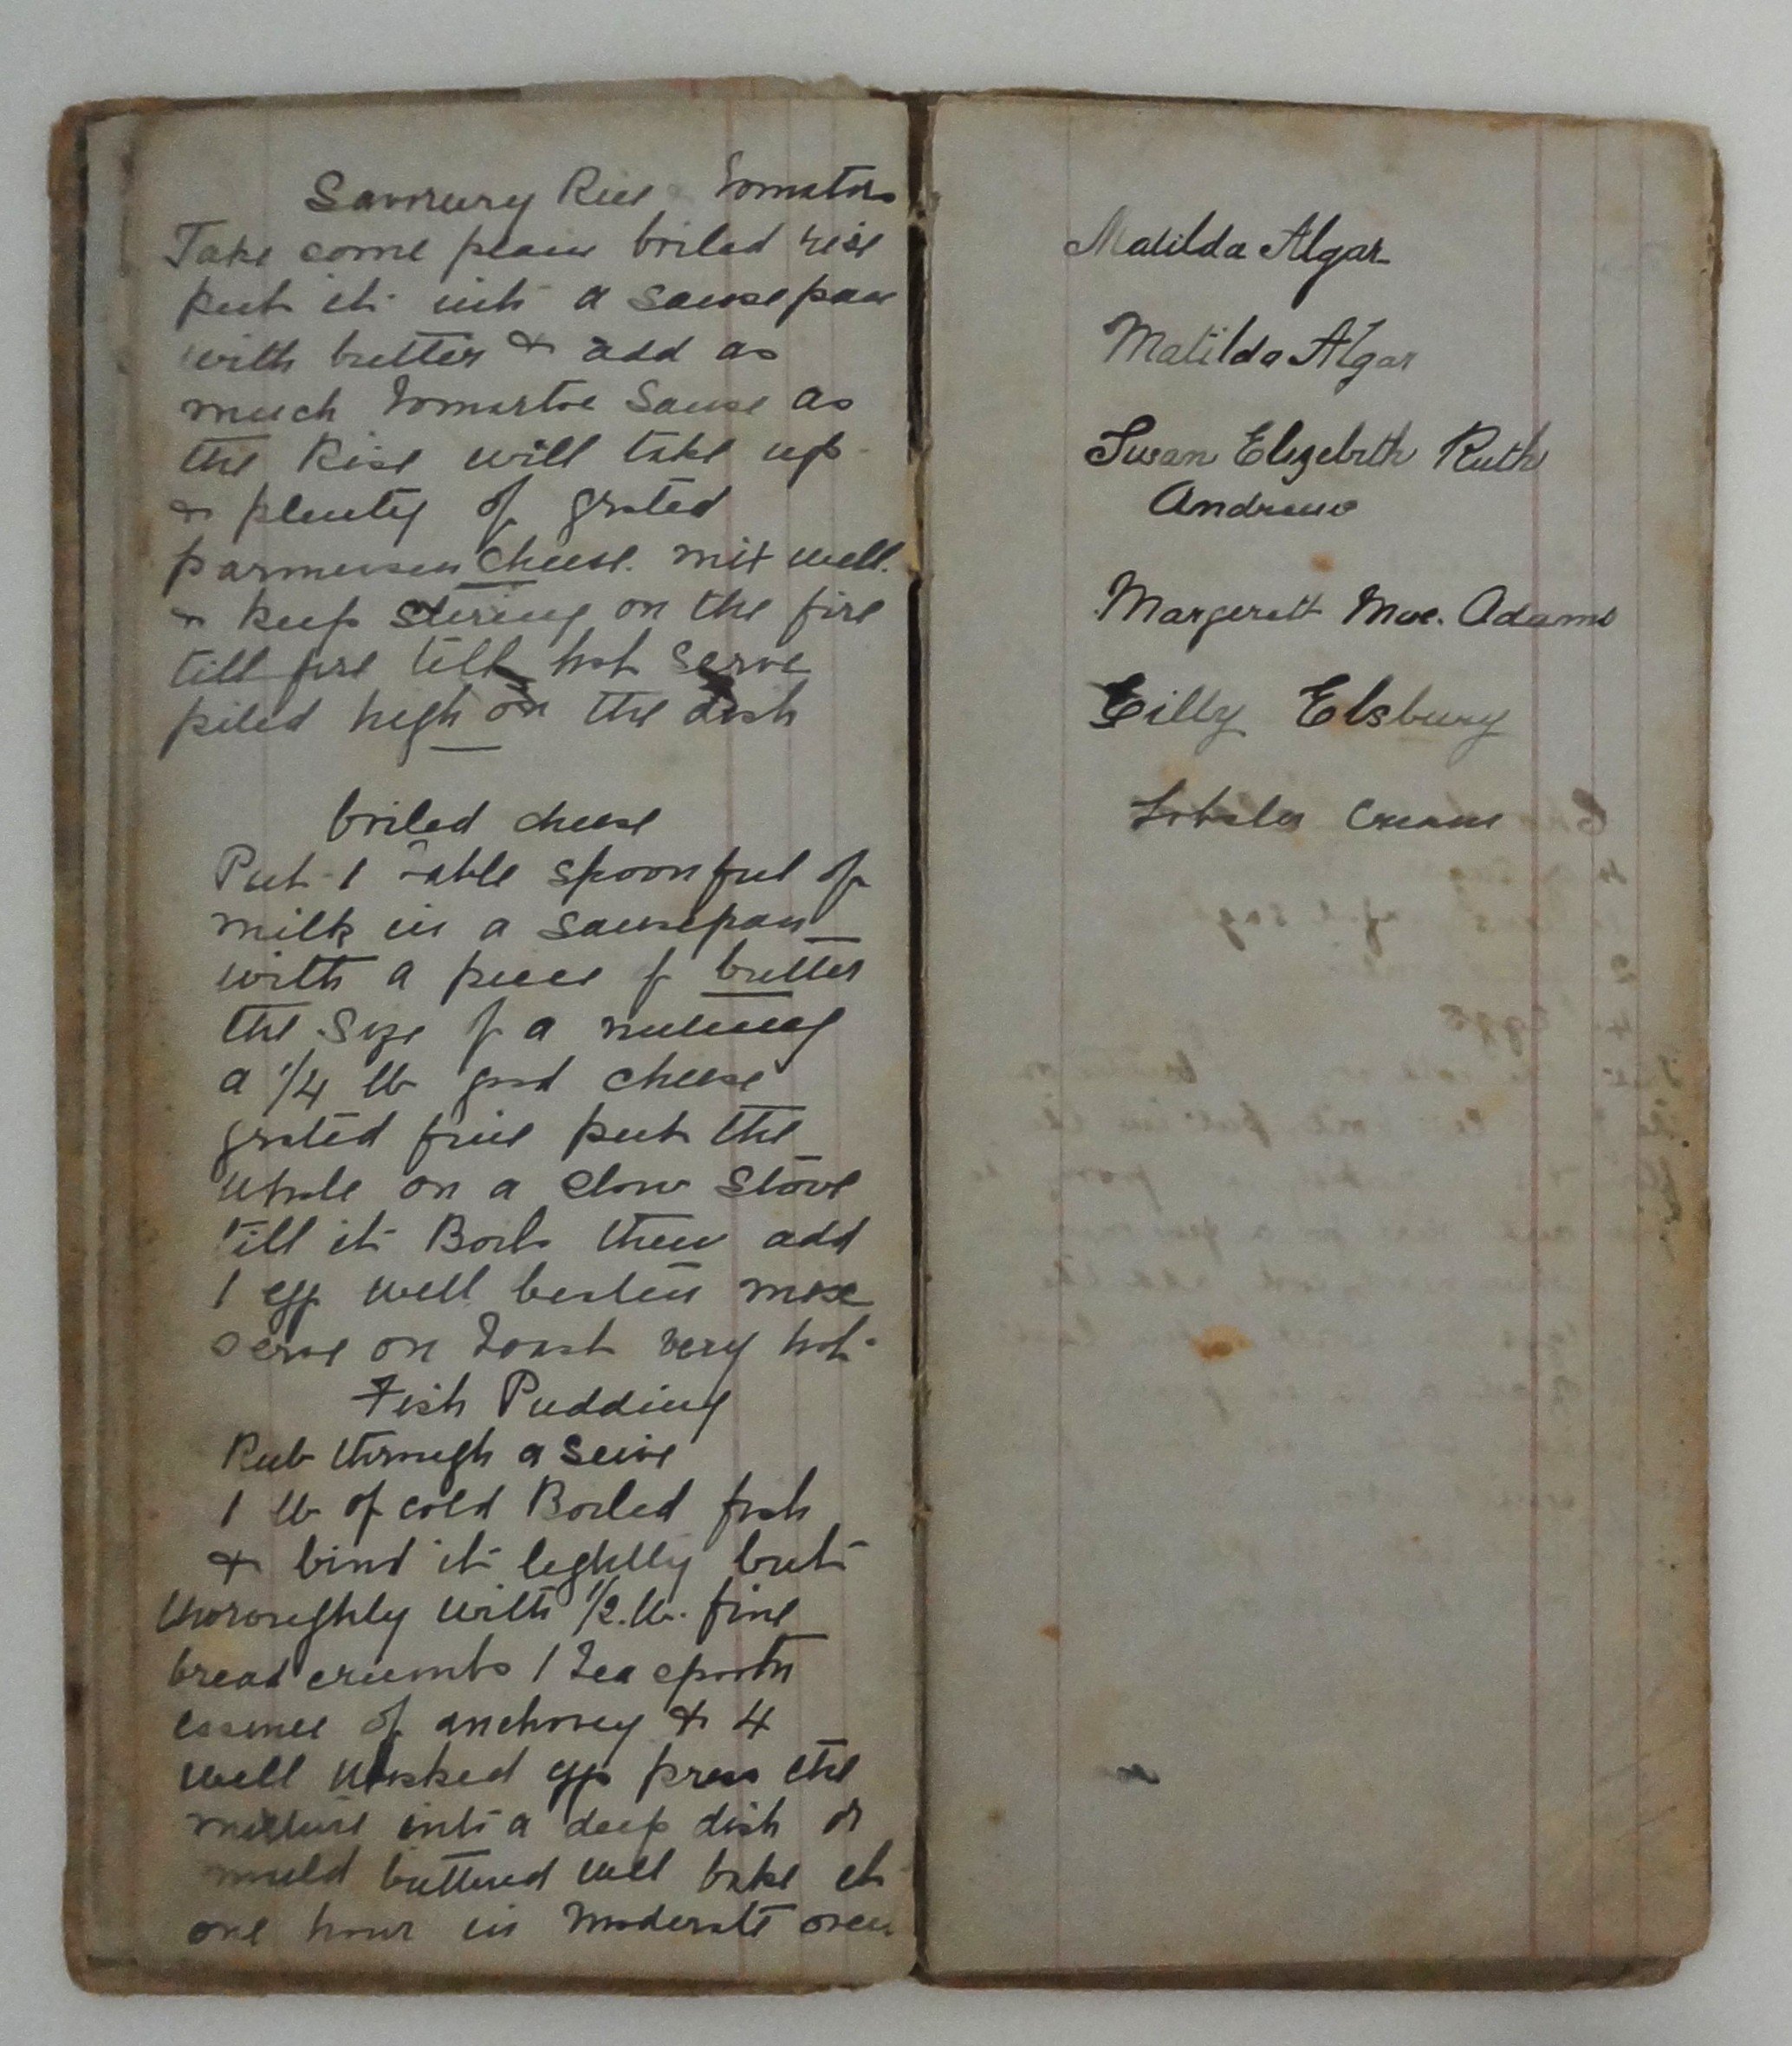 Savoury Rice Tomatoes
Take some plain boiled rise
put it into a sausepan
with butter & add as
much Tomartoe Sause as
the Rise will take up
& plenty of grated
parmersen cheese. mix well.
& keep stiring on the fire
till fire till hot serve
piled high on the dish
boiled cheese
Put 1 table spoonful of
milk in a sausepan
with a piece of butter
the size of a nutmeg
a 1/4 lb good cheese
grated fine put the
whole on a slow stove
till it Boils then add
1 egg well beaten mix
serve on Toast very hot
Fish Pudding
Rub through a seive
1 lb of cold Boiled fish
& bind it lightly but
thoroughly with 1/2 lb. fine
bread crumbs 1 Tea spoon
essence of anchovey & 4
well wisked eggs press the
mixture into a deep dish or
mould buttered well bake it
one hour in moderate oven
Matilda Algar
Matilda Algar
Susan Elizebeth Ruth
Andrews
Margerett Mae. Adams
Cilly Elsbury
Lobster Cream